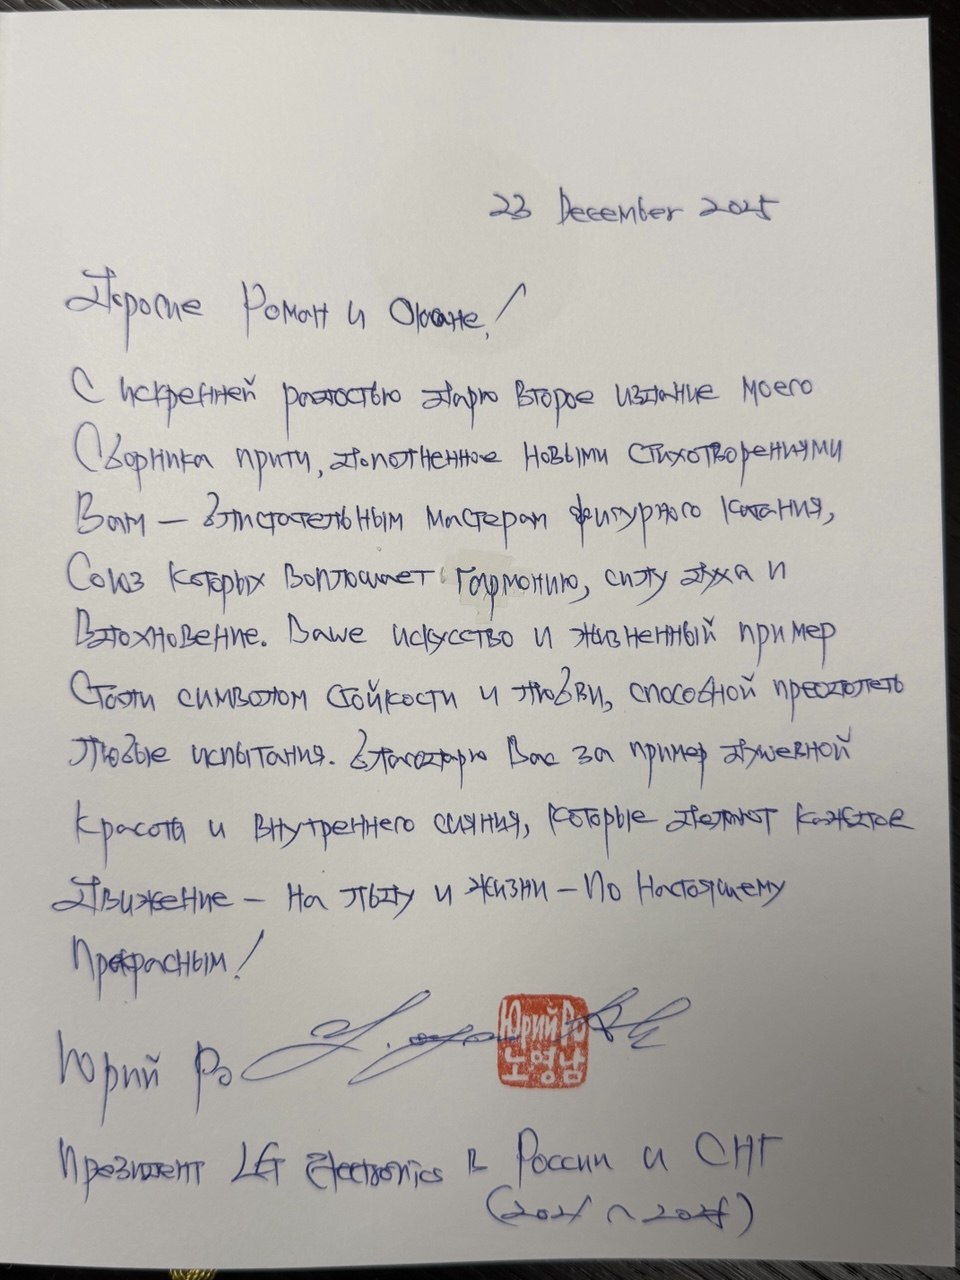 23 December 2025
Дорогие Роман и Оксане!
С искренней радостью дарю второе издание моего
Сборника прити, дополненное новыми стихотворениями
Вам — блистательным мастерам фигурного катания,
Союз которых воплощает гармонию, силу духа и
Вдохновение. Ваше искусство и жизненный пример
Стали символом стойкости и любви, способной преодолеть
любые испытания. благодарю Вас за пример душевной
красота и внутреннего сияния, которые делают каждое
Движение — на льду и жизни — по настоящему
Прекрасным!
Юрий Ро
Юрий Ро
노영남
Президент LG Electronics в России и СНГ